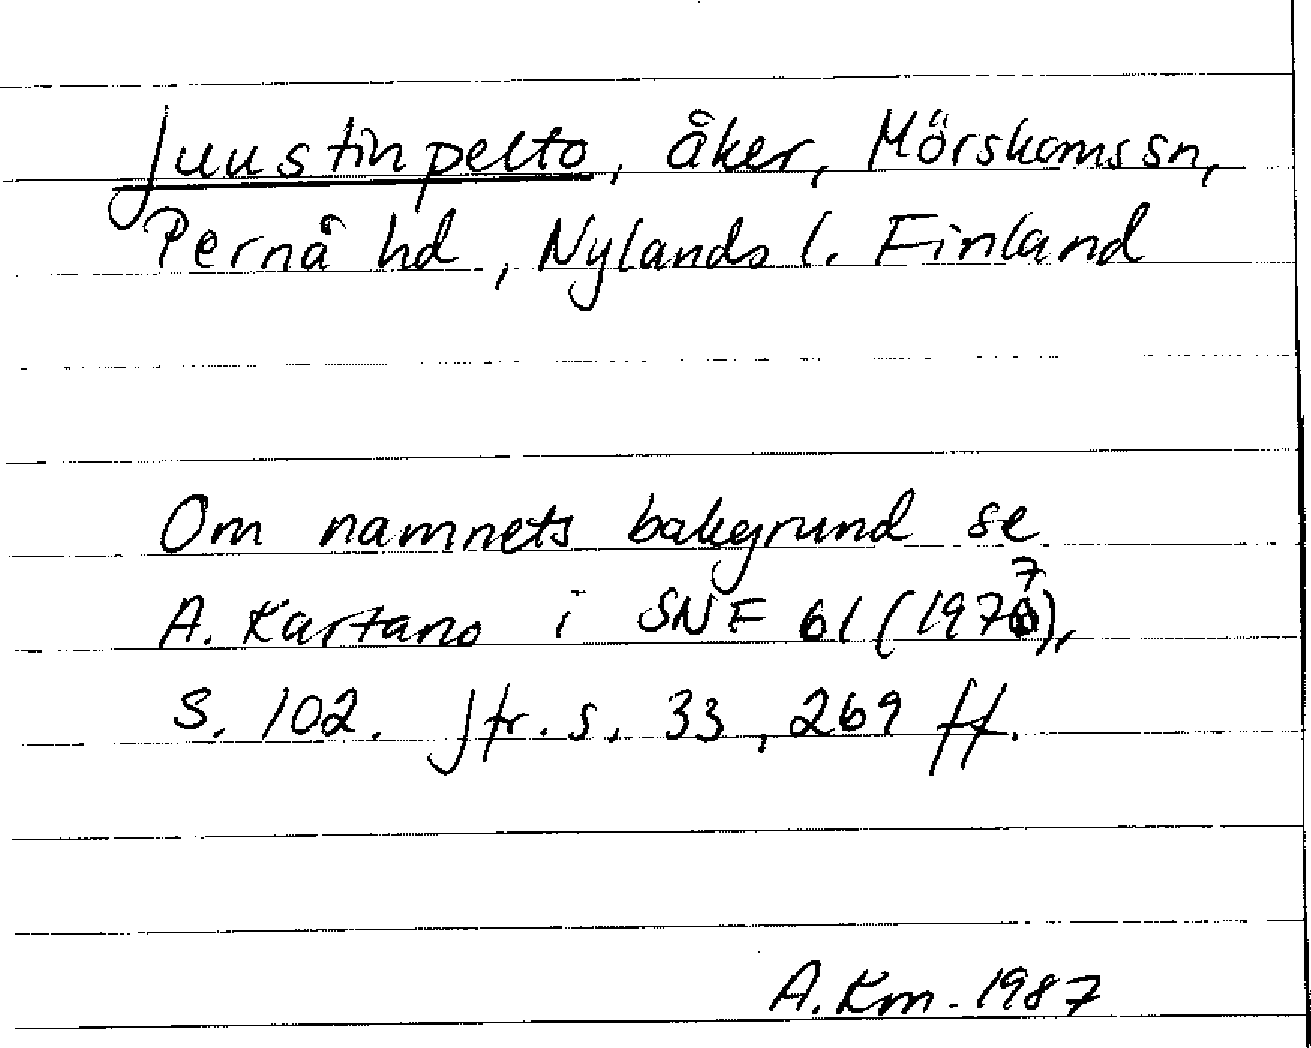 Juustinpelto, åker, Mörskoms sn,
Pernå hd, Nylands l. Finland
Om namnets bakgrund se
A. Kartano i SNF 61 (1977),
s. 102. Jfr. s. 33, 269 ff.
A. Km. 1987